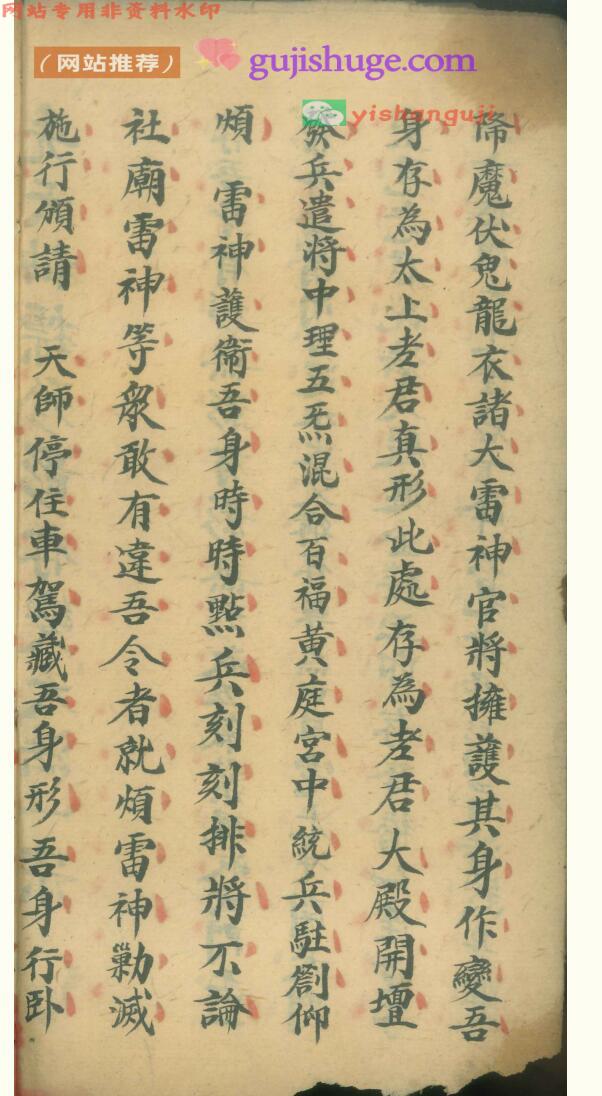 网站专用非资料水印
(网站推荐)
gujishuge.com
yishanguji
降魔伏鬼龍衣諸大雷神官將擁護其身作變吾
身存為太上老君真形此處存為老君大殿開壇
發兵遣將中理五炁混合百福黄庭宮中統兵駐劄仰
煩 雷神護衛吾身時時點兵刻刻排將不論
社廟雷神等衆敢有違吾令者就煩雷神勦滅
施行頒請 天師停住車駕藏吾身形吾身行卧